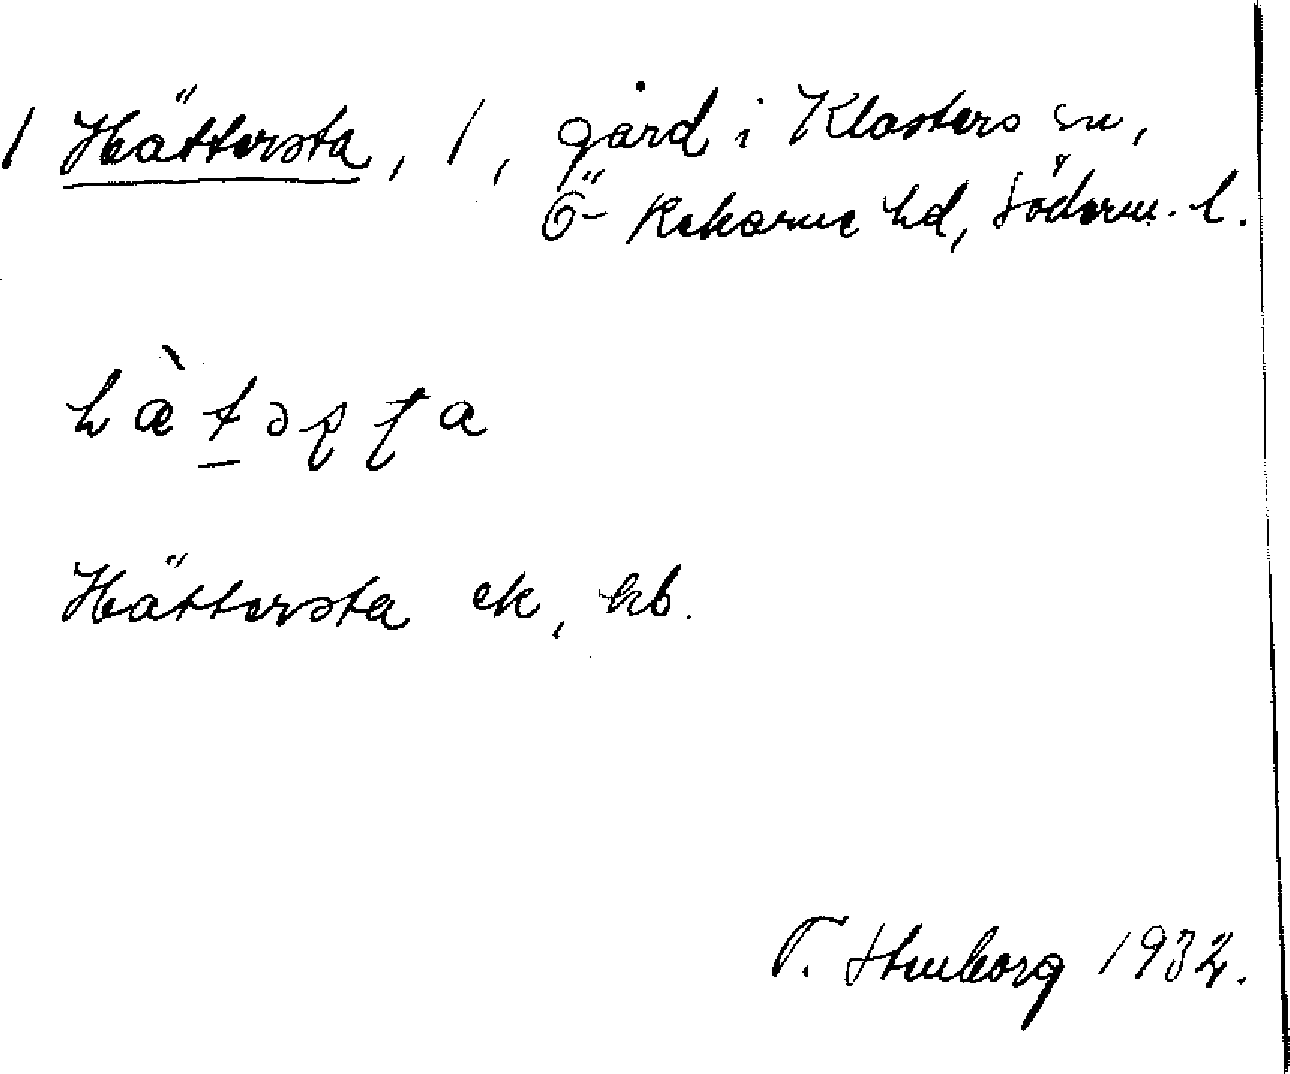 1 Hättersta, 1, gård i Klosters sn,
Ö- Rekarne hd, Söderm. l.
hæ̀t̠əʂʈa
Hättersta ek, kb.
T. Stenborg 1932.